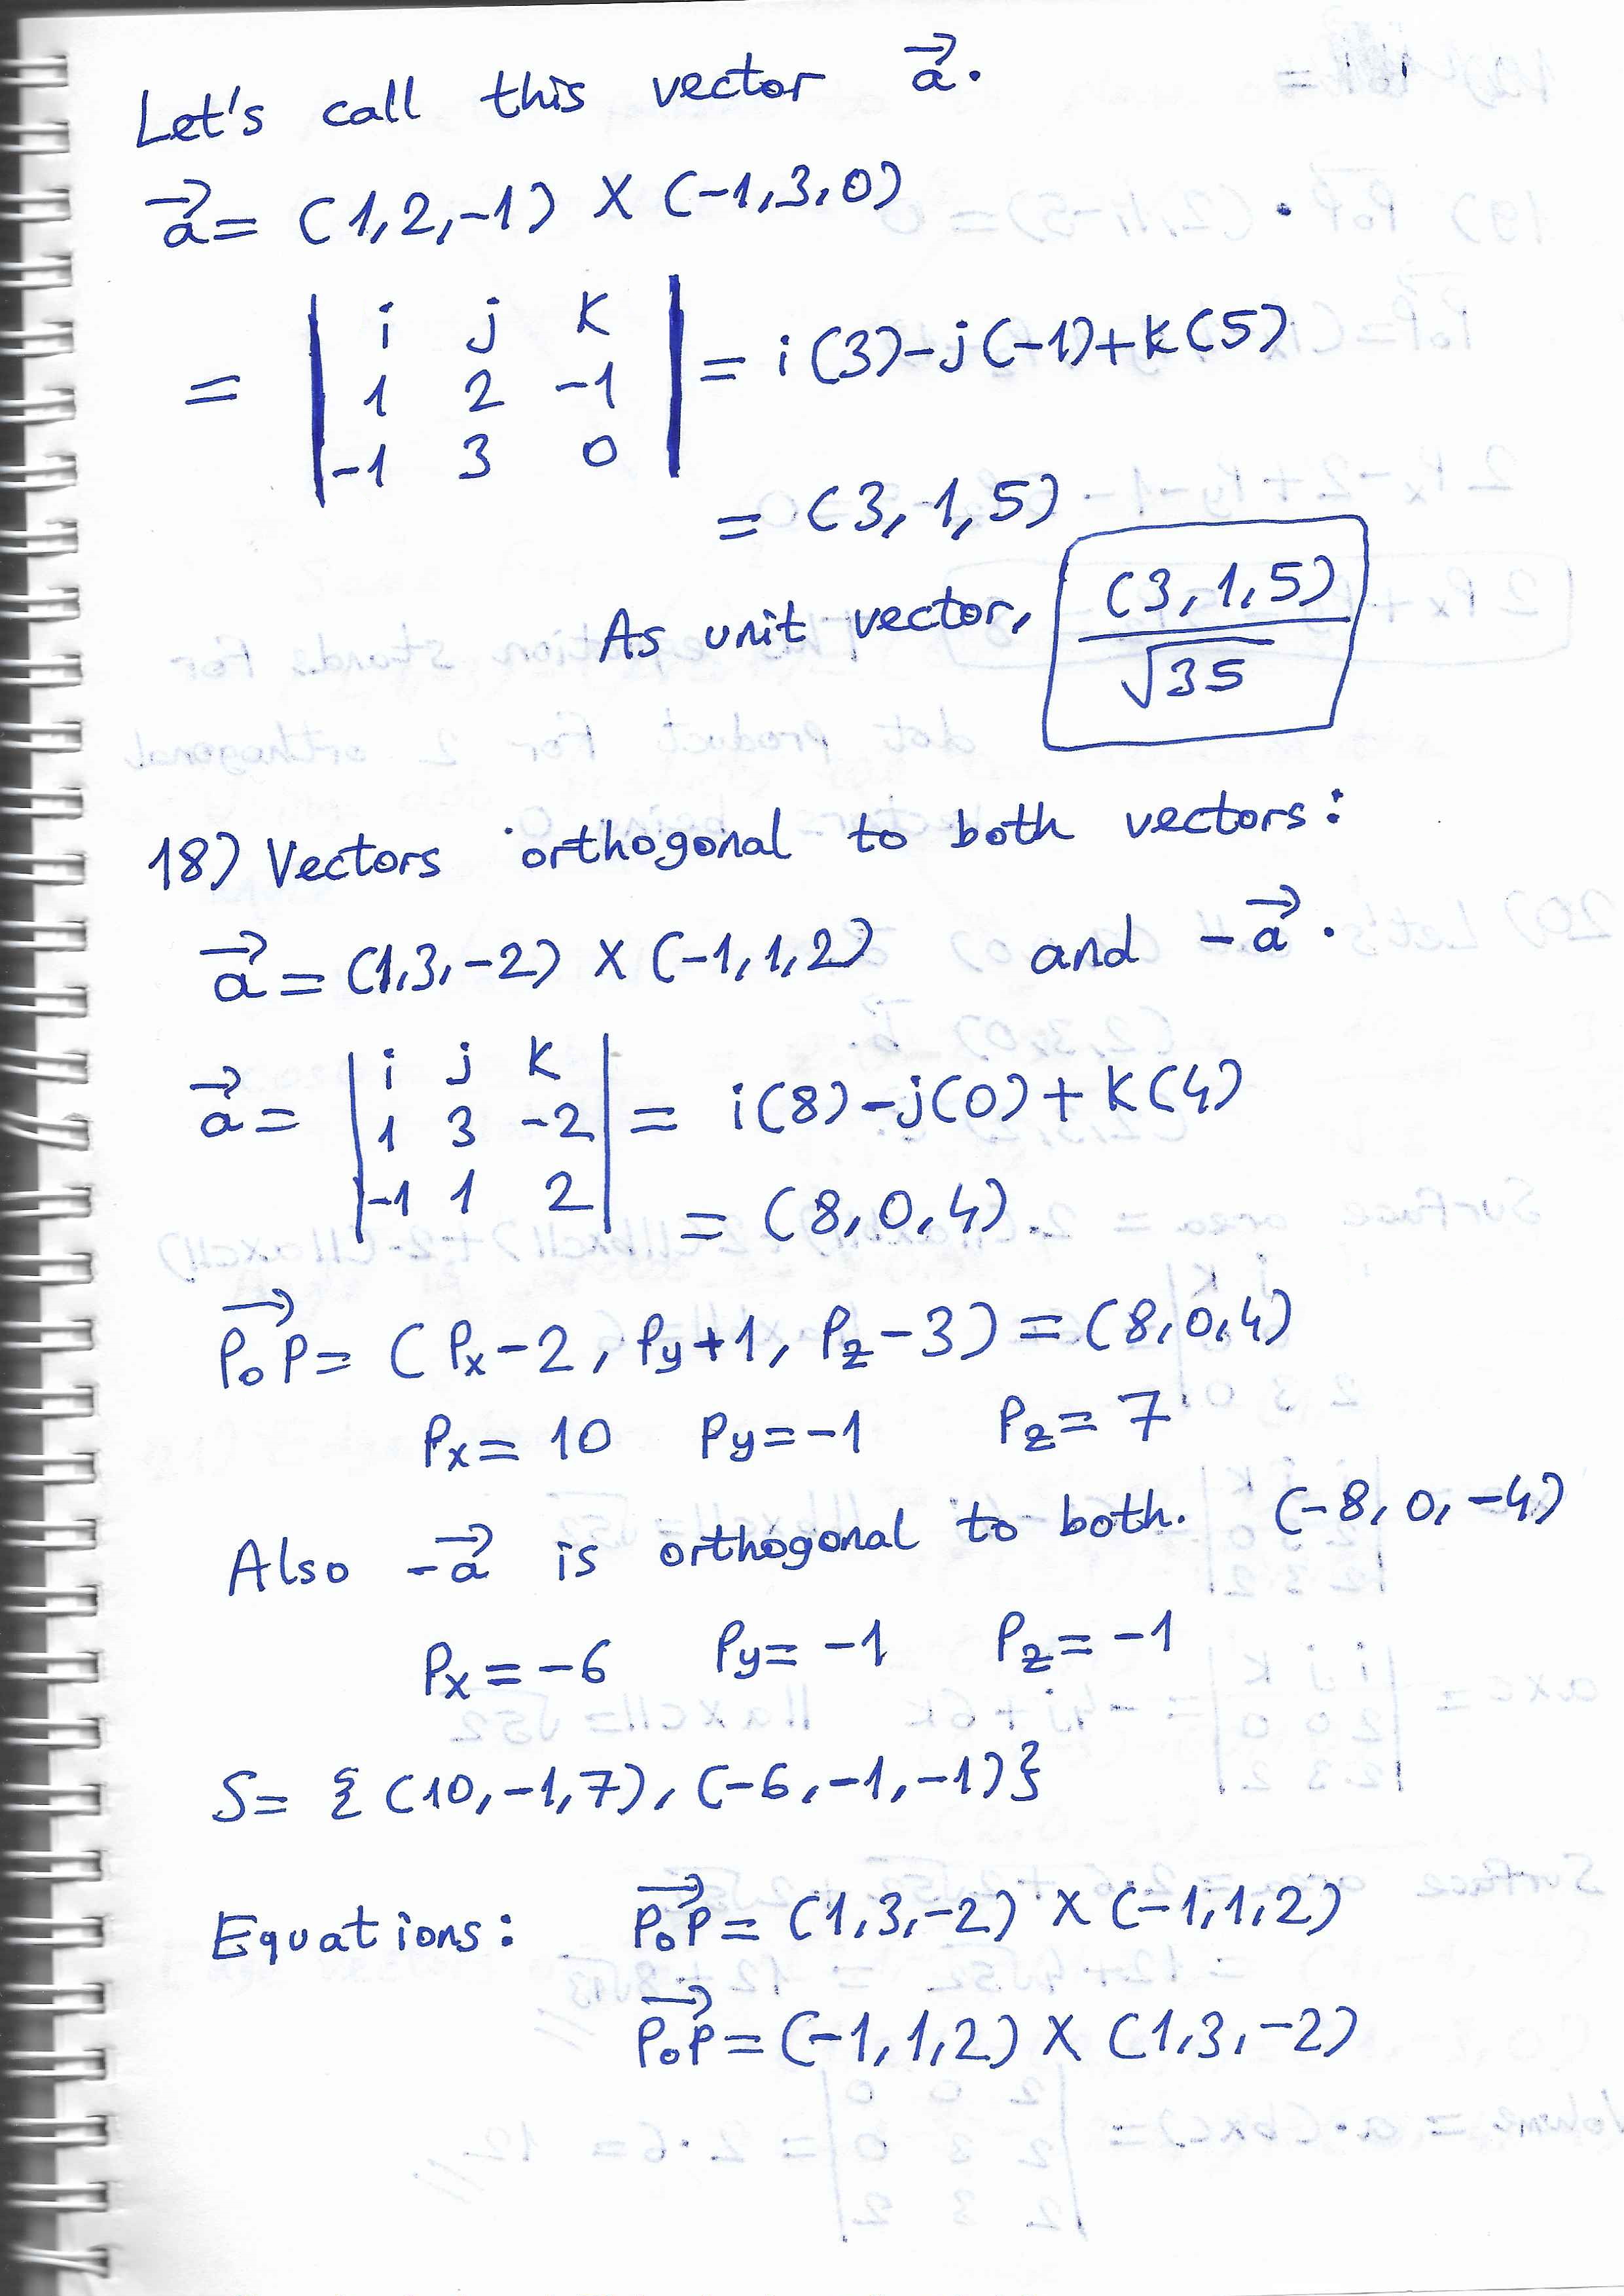 Let's call this vector a⃗.
a⃗ = (1,2,-1) X (-1,3,0)
= | i j k |
| 1 2 -1 | = i(3)-j(-1)+k(5)
| -1 3 0 |
= (3,1,5)
As unit vector, (3,1,5)
√35
18) Vectors orthogonal to both vectors:
a⃗ = (1,3,-2) X (-1,1,2) and -a⃗.
a⃗ = | i j k |
| 1 3 -2 | = i(8)-j(0)+k(4)
| -1 1 2 |
= (8,0,4).
P₀P⃗ = (Px-2, Py+1, Pz-3) = (8,0,4)
Px = 10 Py = -1 Pz = 7
Also -a⃗ is orthogonal to both. (-8,0,-4)
Px = -6 Py = -1 Pz = -1
S = {(10,-1,7), (-6,-1,-1)}
Equations: P₀P⃗ = (1,3,-2) X (-1,1,2)
P₀P⃗ = (-1,1,2) X (1,3,-2)